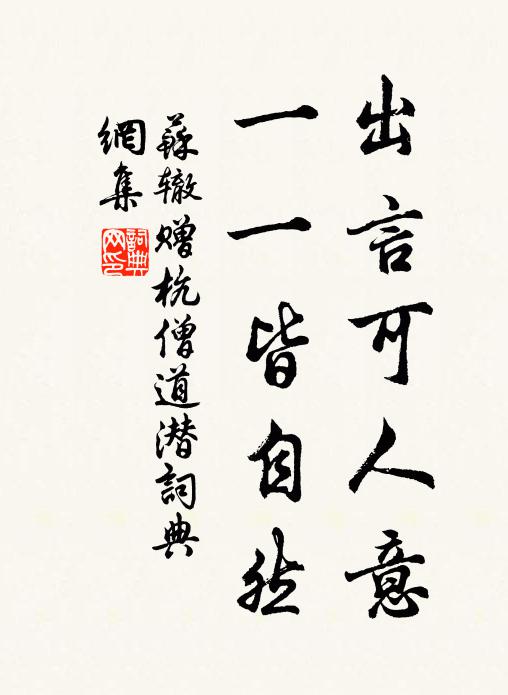 出言可人意
一一皆自然
蘇辙赠杭僧道潜詞典
網集
詞典
网印